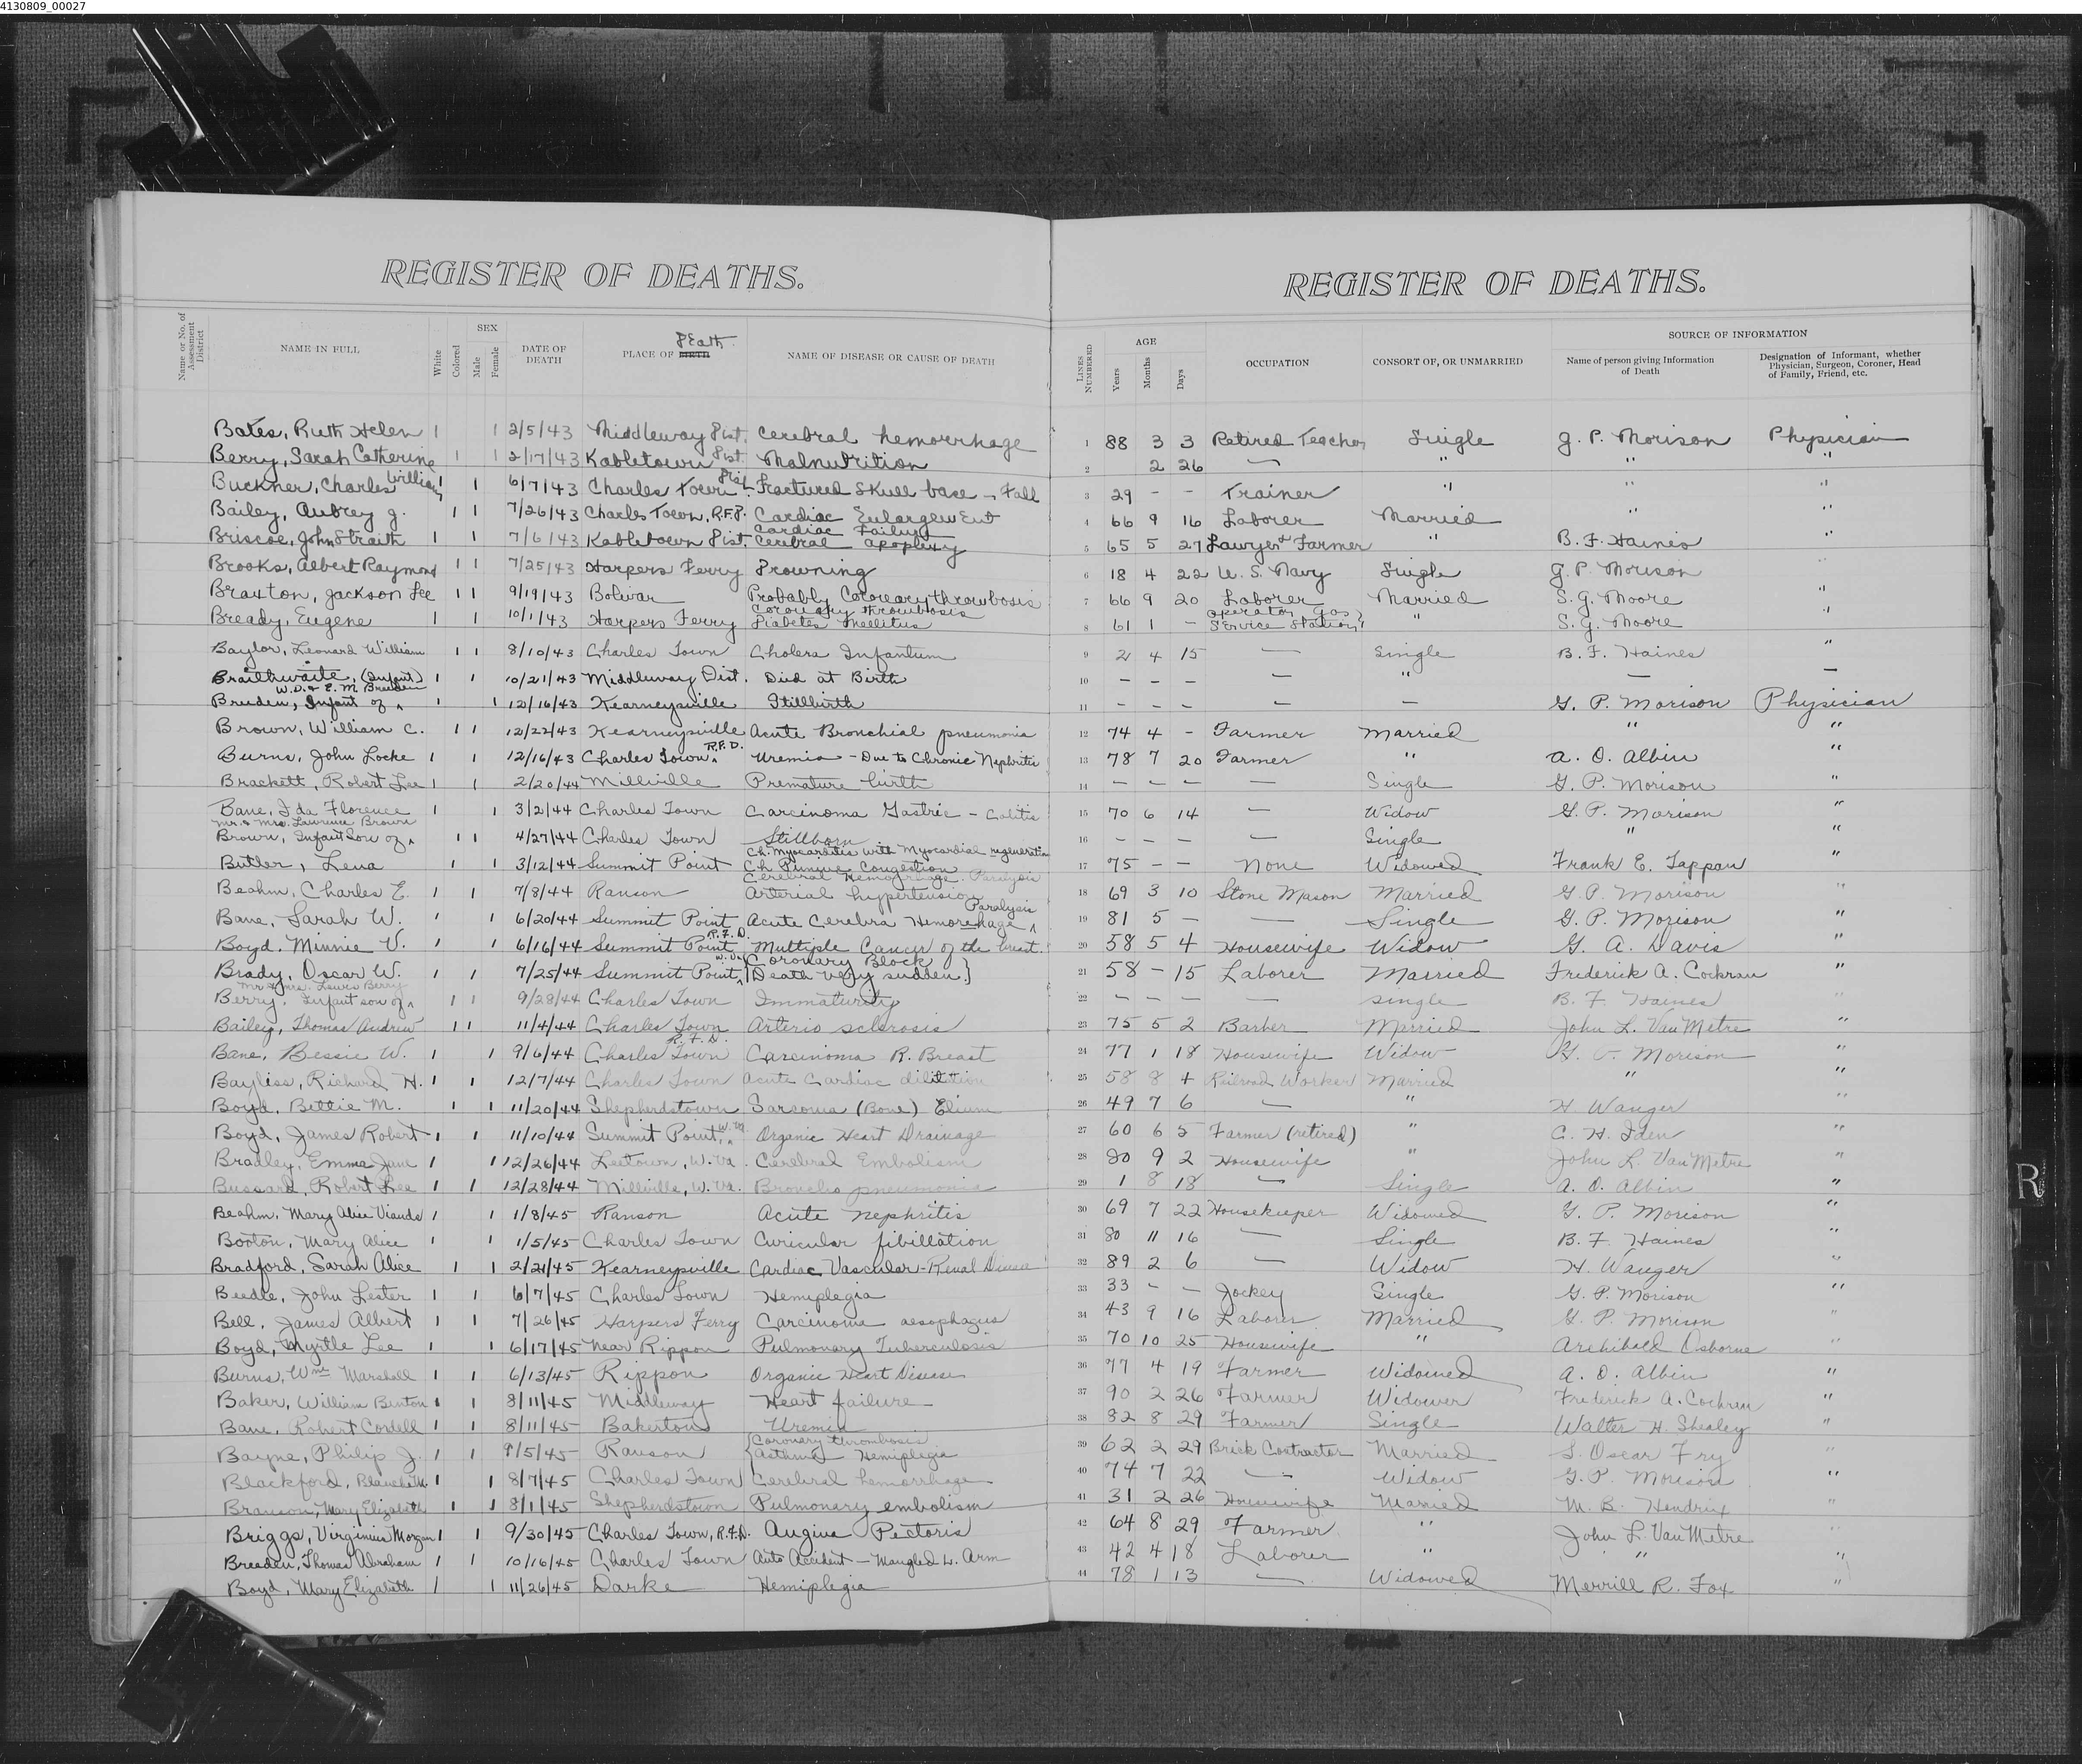 4130809_00027
REGISTER OF DEATHS.
REGISTER OF DEATHS.
Name or No. of Assessment District
NAME IN FULL
White
Colored
SEX
Male
Female
DATE OF DEATH
PLACE OF BIRTH Death
NAME OF DISEASE OR CAUSE OF DEATH
LINES NUMBERED
AGE
Years
Months
Days
OCCUPATION
CONSORT OF, OR UNMARRIED
SOURCE OF INFORMATION
Name of person giving Information of Death
Designation of Informant, whether Physician, Surgeon, Coroner, Head of Family, Friend, etc.
Bates, Ruth Helen 1 1 2/5/43 Middleway Dist. Cerebral hemorrhage 1 88 3 3 Retired Teacher Single G. P. Morison Physician
Berry, Sarah Catherine 1 1 2/17/43 Kabletown Dist. Malnutrition 2 2 26 — " " "
Buckner, Charles William 1 1 6/7/43 Charles Town Dist. Fractured Skull base - Fall 3 29 - - Trainer " " "
Bailey, Aubrey J. 1 1 7/26/43 Charles Town, R.F.D. Cardiac Enlargement 4 66 9 16 Laborer Married " "
Briscoe, John Straith 1 1 7/6/43 Kabletown Dist. Cardiac Failure Cerebral apoplexy 5 65 5 27 Lawyer & Farmer " B. F. Haines "
Brooks, Albert Raymond 1 1 7/25/43 Harpers Ferry Drowning 6 18 4 22 U. S. Navy Single G. P. Morison "
Braxton, Jackson Lee 1 1 9/19/43 Bolivar Probably Coronary thrombosis 7 66 9 20 Laborer Married S. G. Moore "
Bready, Eugene 1 1 10/1/43 Harpers Ferry Coronary thrombosis Diabetes Mellitus 8 61 1 - Operator Gas Service Station " S. G. Moore "
Baylor, Leonard William 1 1 8/10/43 Charles Town Cholera Infantum 9 2 4 15 — Single B. F. Haines "
Braithwaite, (Infant) 1 1 10/21/43 Middleway Dist. Died at Birth 10 - - - — " — —
Breeden, Infant of W. D. & E. M. Breeden 1 1 12/16/43 Kearneysville Stillbirth 11 - - - — — G. P. Morison Physician
Brown, William C. 1 1 12/22/43 Kearneysville Acute Bronchial pneumonia 12 74 4 - Farmer Married " "
Burns, John Locke 1 1 12/16/43 Charles Town R.F.D. Uremia - Due to Chronic Nephritis 13 78 7 20 Farmer " A. O. Albin "
Brackett, Robert Lee 1 1 2/20/44 Millville Premature birth 14 - - - — Single G. P. Morison "
Bane, Ida Florence 1 1 3/2/44 Charles Town Carcinoma Gastric - Colitis 15 70 6 14 — Widow G. P. Morison "
Brown, Infant Son of Mr. & Mrs. Lawrence Brown 1 1 4/27/44 Charles Town Stillborn 16 - - - — Single " "
Butler, Lena 1 1 3/12/44 Summit Point Ch. Myocarditis with Myocardial Congestion 17 75 - - None Widowed Frank E. Tappan "
Beahm, Charles E. 1 1 7/8/44 Ranson Cerebral Hemorrhage Paralysis Arterial hypertension 18 69 3 10 Stone Mason Married G. P. Morison "
Bane, Sarah W. 1 1 6/20/44 Summit Point Acute Cerebra Hemorrhage Paralysis 19 81 5 - — Single G. P. Morison "
Boyd, Minnie V. 1 1 6/16/44 Summit Point R.F.D. Multiple Cancer of the breast. 20 58 5 4 Housewife Widow G. A. Davis "
Brady, Oscar W. 1 1 7/25/44 Summit Point, W. Va. Coronary Block (Death very sudden.) 21 58 - 15 Laborer Married Frederick A. Cockran "
Berry, Infant son of Mr & Mrs. Lewis Berry 1 1 9/28/44 Charles Town Immaturity 22 - - - — single B. F. Haines "
Bailey, Thomas Andrew 1 1 11/4/44 Charles Town Arterio sclerosis 23 75 5 2 Barber Married John L. Van Metre "
Bane, Bessie W. 1 1 9/6/44 Charles Town R.F.D. Carcinoma R. Breast 24 77 1 18 Housewife Widow G. P. Morison "
Bayliss, Richard H. 1 1 12/7/44 Charles Town Acute Cardiac dilitation 25 58 8 4 Railroad Worker Married " "
Boyd, Bettie M. 1 1 11/20/44 Shepherdstown Sarsoma (Bone) Elium 26 49 7 6 — " H. Wanger "
Boyd, James Robert 1 1 11/10/44 Summit Point, W. Va. Organic Heart Drainage 27 60 6 5 Farmer (retired) " C. H. Iden "
Bradley, Emma Jane 1 1 12/26/44 Leetown, W. Va. Cerebral Embolism 28 80 9 2 Housewife " John L. Van Metre "
Bussard, Robert Lee 1 1 12/28/44 Millville, W. Va. Broncho pneumonia 29 1 8 18 — Single A. O. Albin "
Beahm, Mary Alice Viands 1 1 1/8/45 Ranson Acute Nephritis 30 69 7 22 Housekeeper Widowed G. P. Morison "
Booton, Mary Alice 1 1 1/5/45 Charles Town Curicular fibillation 31 80 11 16 — Single B. F. Haines "
Bradford, Sarah Alice 1 1 2/21/45 Kearneysville Cardiac Vascular-Renal Disease 32 89 2 6 — Widow H. Wanger "
Beedle, John Lester 1 1 6/7/45 Charles Town Hemiplegia 33 33 - - Jockey Single G. P. Morison "
Bell, James Albert 1 1 7/26/45 Harpers Ferry Carcinoma aesophagus 34 43 9 16 Laborer Married G. P. Morison "
Boyd, Myrtle Lee 1 1 6/17/45 Near Rippon Pulmonary Tuberculosis 35 70 10 25 Housewife " Archibald Osborne "
Burns, Wm Marshall 1 1 6/13/45 Rippon Organic Heart Disease 36 77 4 19 Farmer Widowed A. O. Albin "
Baker, William Benton 1 1 8/11/45 Middleway Heart failure 37 90 2 26 Farmer Widower Frederick A. Cochran "
Bane, Robert Cordell 1 1 8/11/45 Bakerton Uremia 38 82 8 29 Farmer Single Walter H. Shealey "
Bayne, Philip J. 1 1 9/5/45 Ranson Coronary thrombosis Asthma Hemiplegia 39 62 2 29 Brick Contractor Married S. Oscar Fry "
Blackford, Blanche M. 1 1 8/7/45 Charles Town Cerebral hemorrhage 40 74 7 22 — Widow G. P. Morison "
Branson, Mary Elizabeth 1 1 8/1/45 Shepherdstown Pulmonary embolism 41 31 2 26 Housewife Married M. B. Hendrix "
Briggs, Virginius Morgan 1 1 9/30/45 Charles Town, R.F.D. Angina Pectoris 42 64 8 29 Farmer " John L. Van Metre "
Breeden, Thomas Abraham 1 1 10/16/45 Charles Town Auto Accident - Mangled L. Arm 43 42 4 18 Laborer " " "
Boyd, Mary Elizabeth 1 1 11/26/45 Darke Hemiplegia 44 78 1 13 — Widowed Merrill R. Fox "